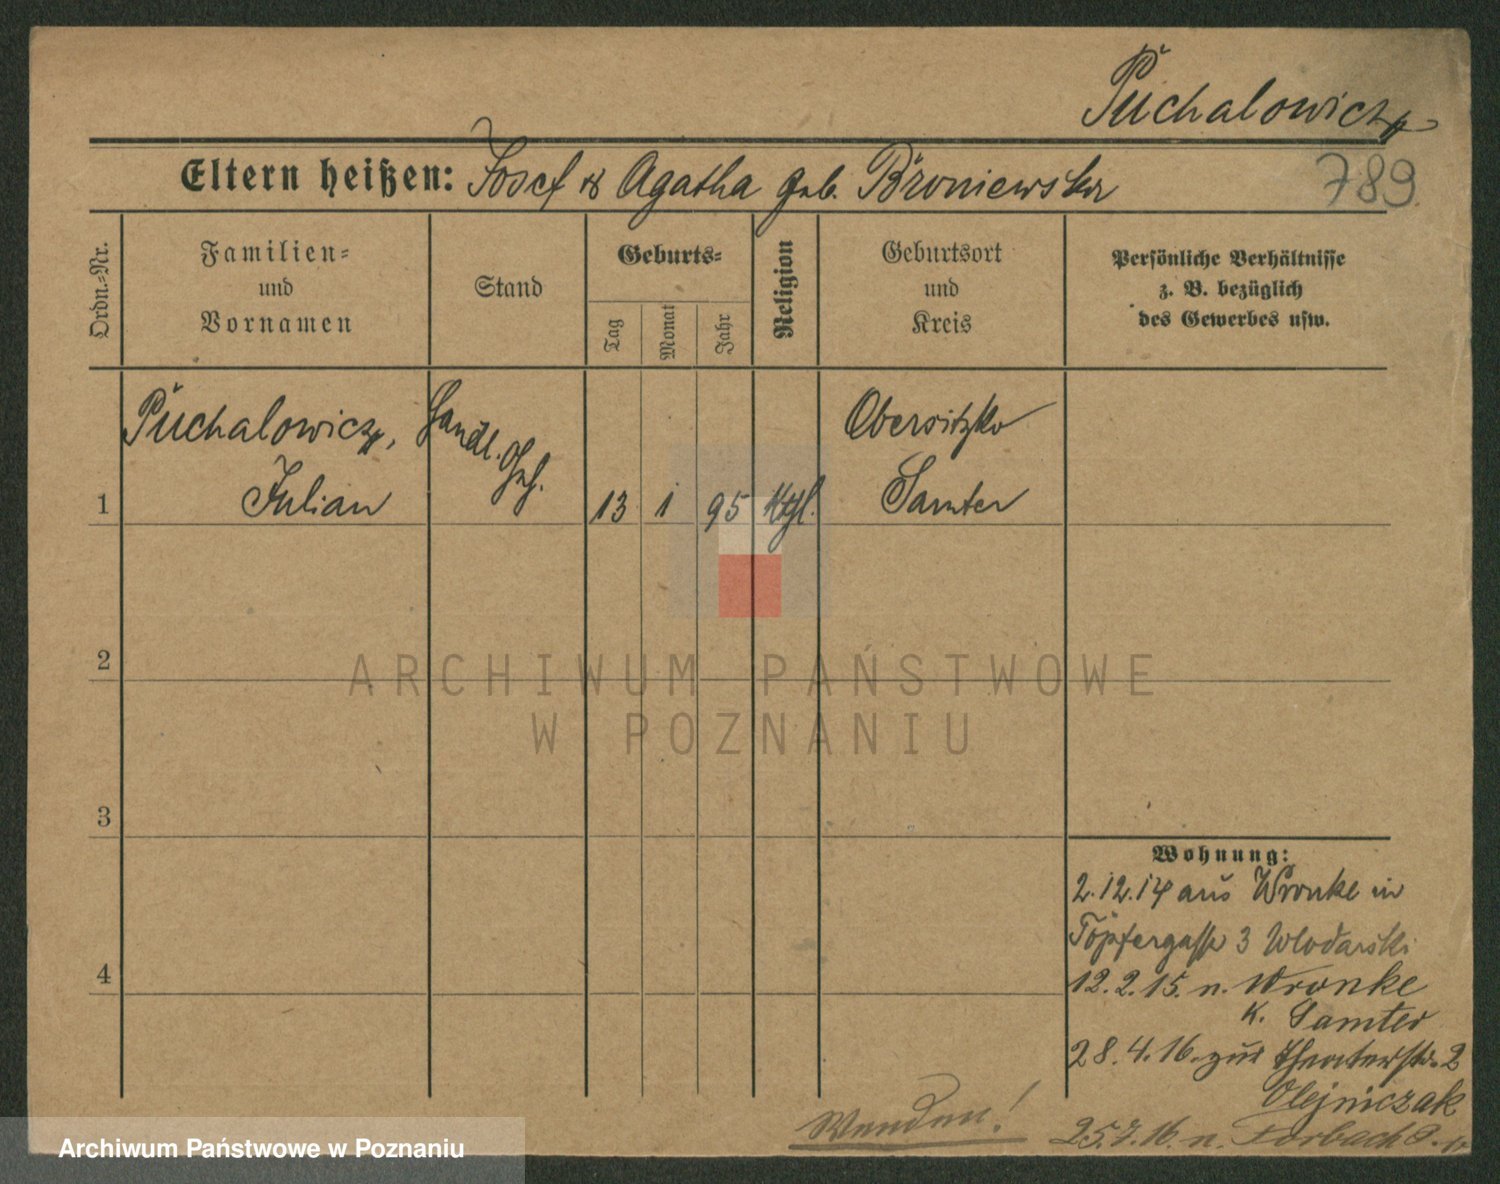 Puchalowicz
Eltern heißen: Josef & Agatha geb. Broniewska
789.
Ordn.-Nr.
Familien-
und
Vornamen
Stand
Geburts-
Tag
Monat
Jahr
Religion
Geburtsort
und
Kreis
Persönliche Verhältnisse
z. B. bezüglich
des Gewerbes usw.
1
Puchalowicz,
Julian
Handl.
Geh.
13 1 95 Kthl.
Obersitzko
Samter
2
3
4
ARCHIWUM PAŃSTWOWE
W POZNANIU
Wohnung:
2.12.14 aus Wronke in
Töpfergasse 3 Wlodarski
12.2.15. n. Wronke
K. Samter
28.4.16. zur Theaterstr. 2
Olejniczak
25.7.16. n. Forbach
Wenden!
Archiwum Państwowe w Poznaniu